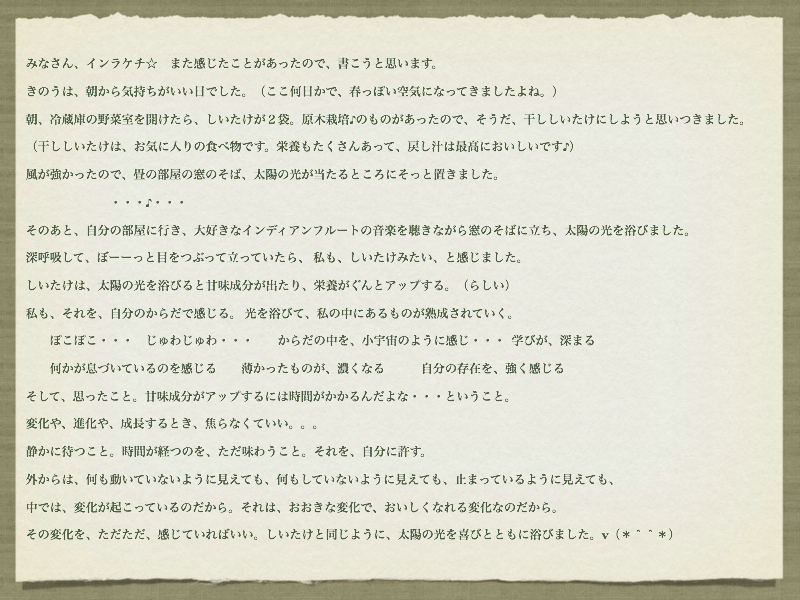 みなさん、インラケチ☆　また感じたことがあったので、書こうと思います。
きのうは、朝から気持ちがいい日でした。（ここ何日かで、春っぽい空気になってきましたよね。）
朝、冷蔵庫の野菜室を開けたら、しいたけが２袋。原木栽培♪のものがあったので、そうだ、干ししいたけにしようと思いつきました。
（干ししいたけは、お気に入りの食べ物です。栄養もたくさんあって、戻し汁は最高においしいです♪）
風が強かったので、畳の部屋の窓のそば、太陽の光が当たるところにそっと置きました。
・・・♪・・・
そのあと、自分の部屋に行き、大好きなインディアンフルートの音楽を聴きながら窓のそばに立ち、太陽の光を浴びました。
深呼吸して、ぼーーっと目をつぶって立っていたら、 私も、しいたけみたい、と感じました。
しいたけは、太陽の光を浴びると甘味成分が出たり、栄養がぐんとアップする。（らしい）
私も、それを、自分のからだで感じる。 光を浴びて、私の中にあるものが熟成されていく。
ぽこぽこ・・・　じゅわじゅわ・・・　　からだの中を、小宇宙のように感じ・・・ 学びが、深まる
何かが息づいているのを感じる　　薄かったものが、濃くなる　　　自分の存在を、強く感じる
そして、思ったこと。甘味成分がアップするには時間がかかるんだよな・・・ということ。
変化や、進化や、成長するとき、焦らなくていい。。。
静かに待つこと。時間が経つのを、ただ味わうこと。それを、自分に許す。
外からは、何も動いていないように見えても、何もしていないように見えても、止まっているように見えても、
中では、変化が起こっているのだから。それは、おおきな変化で、おいしくなれる変化なのだから。
その変化を、ただただ、感じていればいい。しいたけと同じように、太陽の光を喜びとともに浴びました。v（＊＾＾＊）